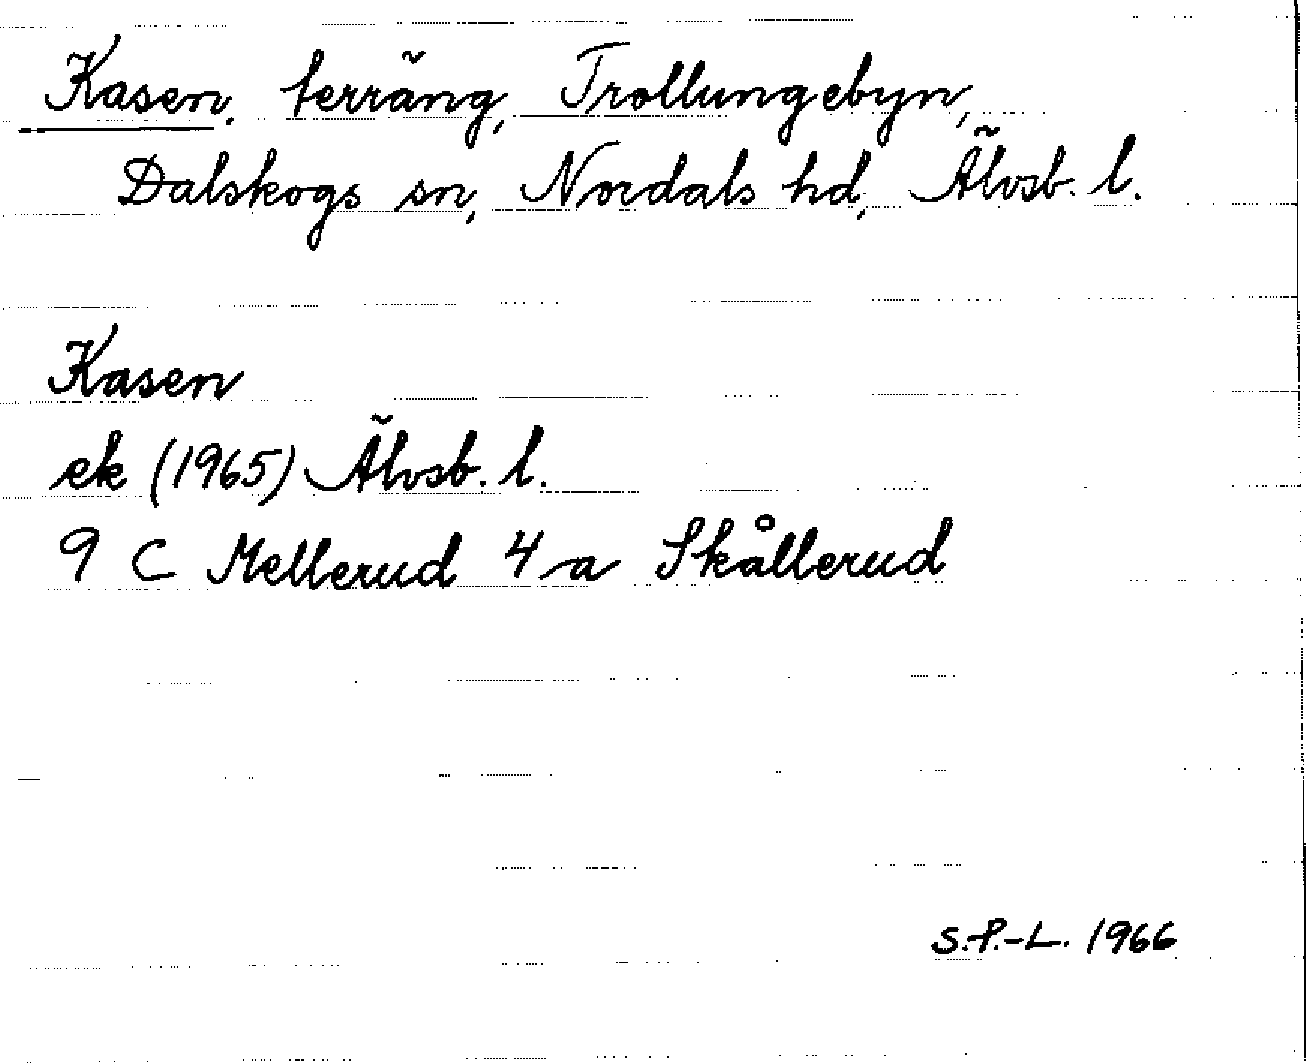 Kasen, terräng, Trollungebyn,
Dalskogs sn, Nordals hd, Älvsb. l.
Kasen
ek (1965) Älvsb. l.
9 C Mellerud 4 a Skållerud
S.P.-L. 1966